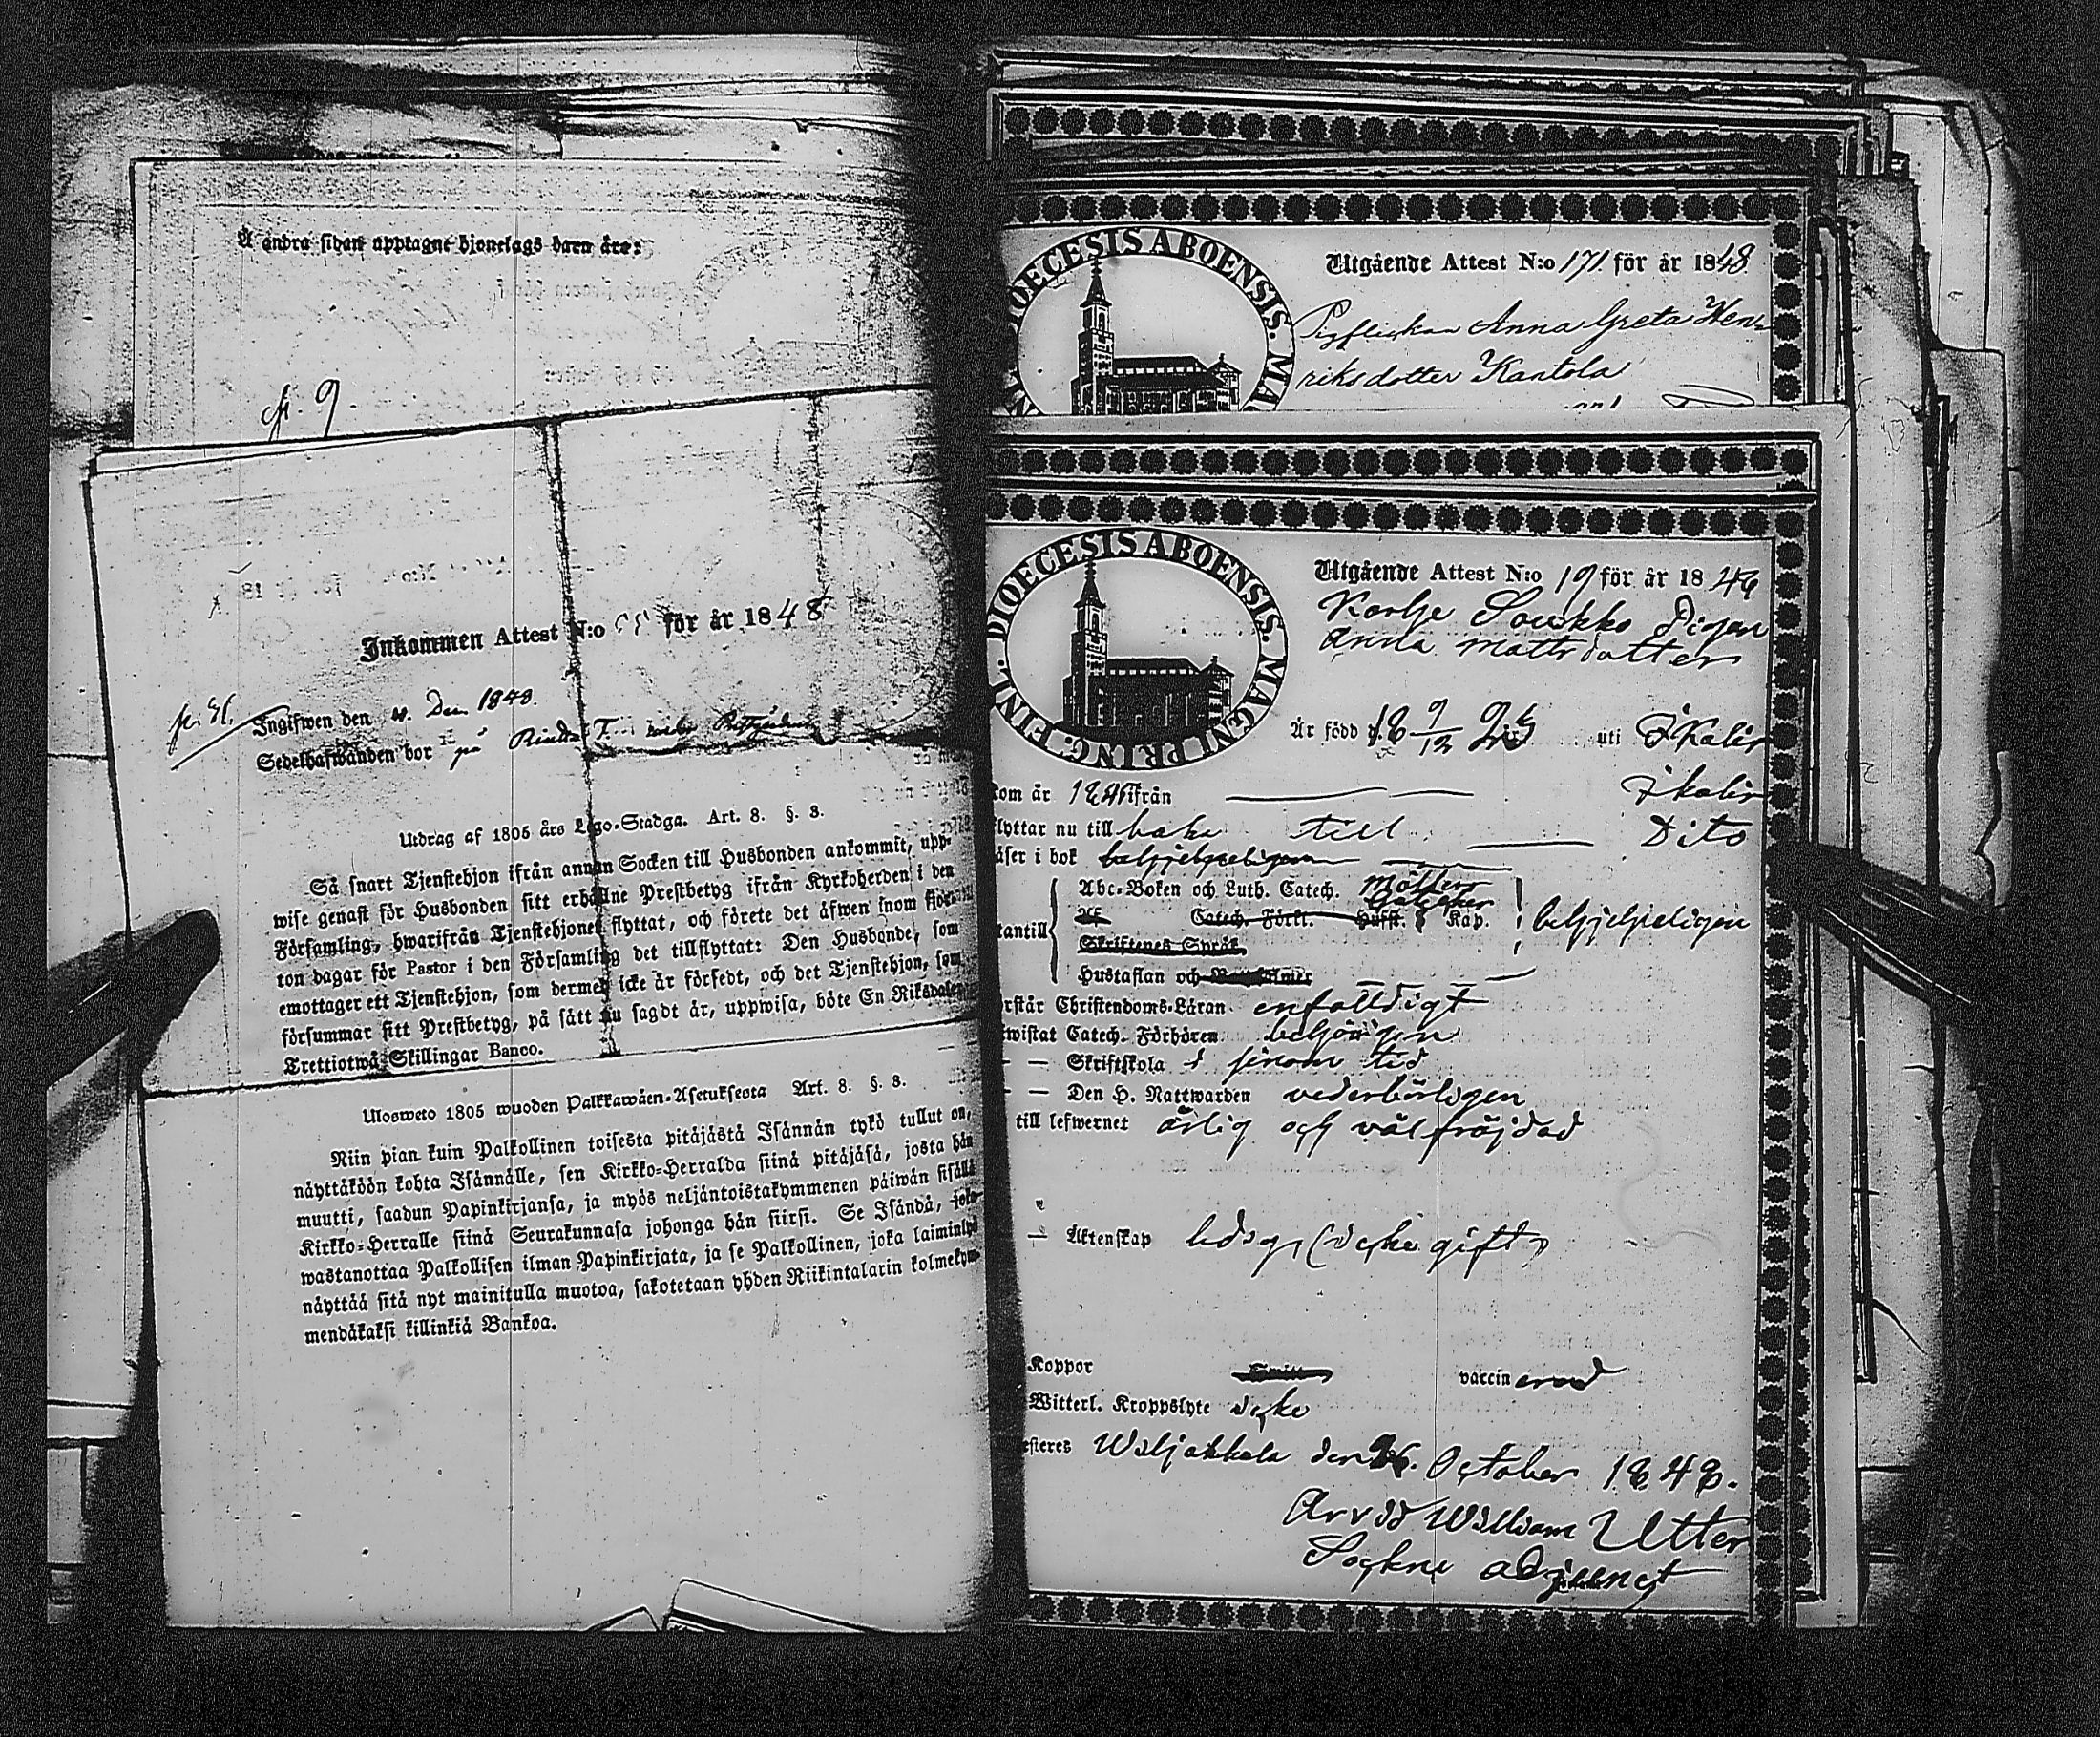 Å andra sidan upptagne hjonelags barn äro:
fr. 9
Inkommen Attest N:o för år 1848
Ingifwen den Dec 1848.
Sedelhafwanden bor på
Utdrag af 1805 års Lego-Stadga. Art. 8. §. 8.
Så snart Tjenstehjon ifrån annan Socken till Husbonden ankommit, upp-
wise genast för Husbonden sitt erhållne Prestbetyg ifrån Kyrkoherden i den
Församling, hwarifrån Tjenstehjonet flyttat, och förete det äfwen inom fjor-
ton dagar för Pastor i den Församling det tillflyttat: Den Husbonde, som
emottager ett Tjenstehjon, som dermed icke är försedt, och det Tjenstehjon, som
försummar sitt Prestbetyg, på sätt nu sagdt är, uppwisa, böte En Riksdaler
Trettiotwå Skillingar Banco.
Ulosweto 1805 wuoden Palkkawäen-Asetuksesta Art. 8. §. 8.
Niin pian kuin Palkollinen toisesta pitäjästä Isännän tykö tullut on,
näyttäköön kohta Isännälle, sen Kirkko-Herralda siinä pitäjäsä, josta hän
muutti, saadun Papinkirjansa, ja myös neljäntoistakymmenen päiwän sisällä
Kirkko-Herralle siinä Seurakunnasa johonga hän siirsi. Se Isändä, joka
wastanottaa Palkollisen ilman Papinkirjata, ja se Palkollinen, joka laiminlyö
näyttää sitä nyt mainitulla muotoa, sakotetaan yhden Riikintalarin kolmekym-
mendäkaksi killinkiä Bankoa.
DIOECESIS ABOENSIS. MAG
Utgående Attest N:o 171. för år 1848.
Pigflickan Anna Greta Hen-
riksdotter Kantola
DIOECESIS ABOENSIS. MAGNI PRINC. FINL.
Utgående Attest N:o 19 för år 1848
Anna Mattsdotter
Är född 18 9/12 uti Ikalis
kom år ifrån Ikalis
flyttar nu till baka till Dito
läser i bok behjelpeligen
Abc-Boken och Luth. Catech.
Catech. Förkl. Kap.
utantill behjelpeligen
Skriftenes Språk
Hustaflan och
förstår Christendoms-Läran enfalldigt
bewistat Catech. Förhören behörigen
— Skriftskola i sinom tid
— Den H. Nattwarden vederbörligen
till lefwernet ärlig och välfräjdad
— Äktenskap ledig (icke gift)
Koppor vaccinerad
Witterl. Kroppslyte icke
Attesteres Wiljakkala den 26. October 1848.
Arvid William Utter
Sockne adjunct